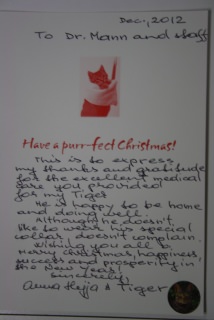 Dec., 2012
To Dr. Mann and staff
Have a purr-fect Christmas!
This is to express
my thanks and gratitude
for the excellent medical
care you provided
for my Tiger
He is happy to be home
and doing well.
Although he doesn't
like to wear his special
collar, doesn't complain.
Wishing you all a
Merry Christmas, happiness,
success and prosperity in
the New Year!
Sincerely,
Anna & Tiger